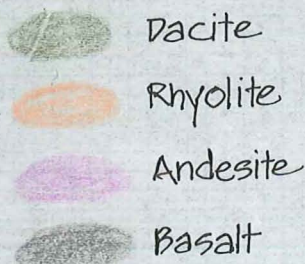 Dacite
Rhyolite
Andesite
Basalt